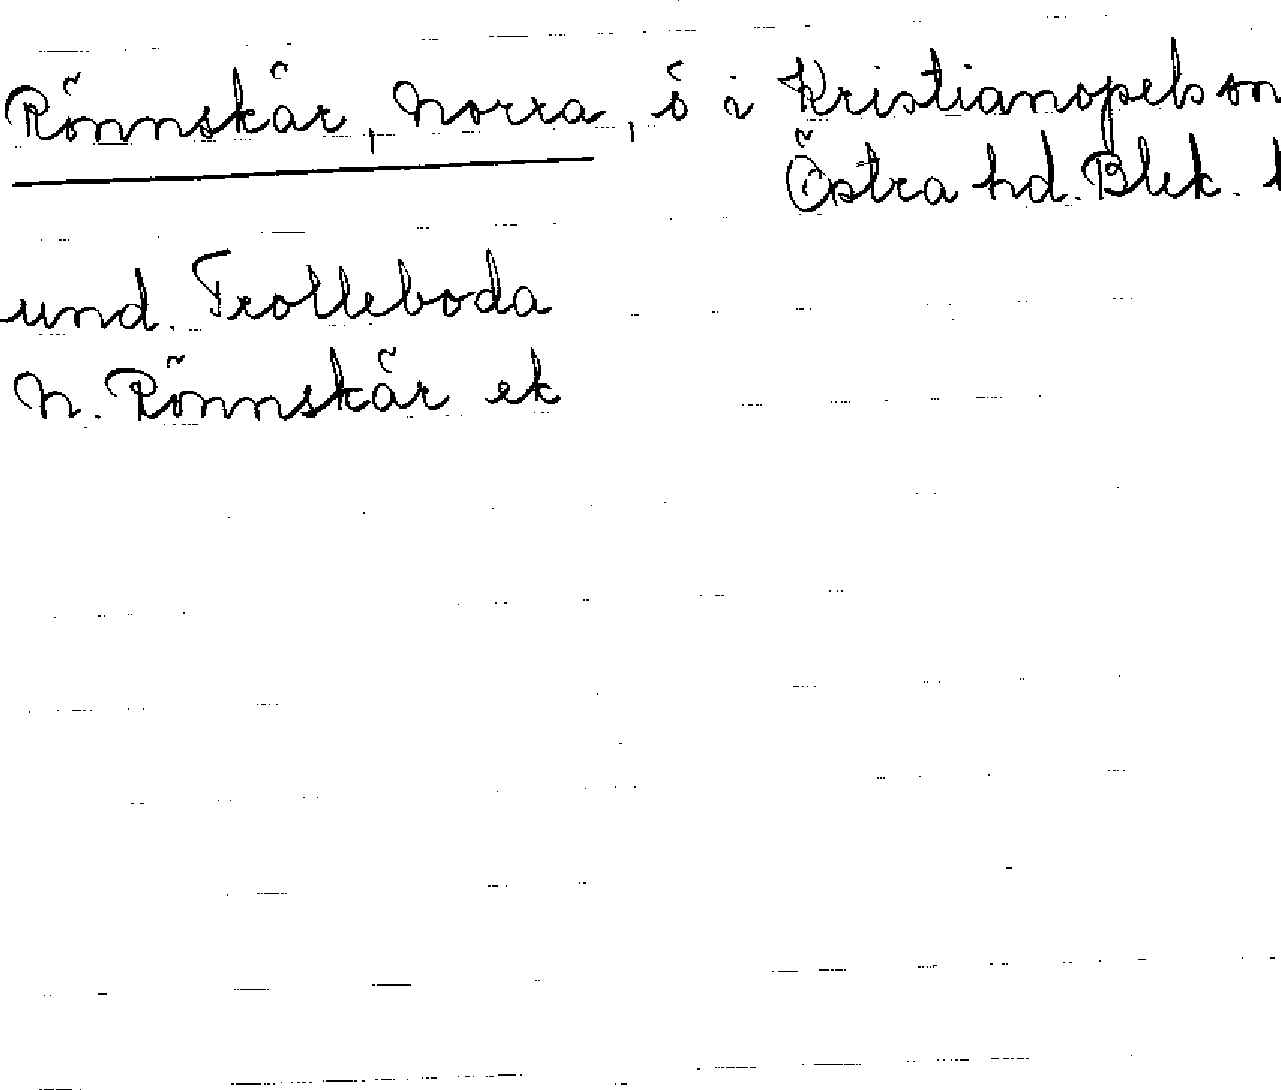 Rönnskär, Norra, ö i Kristianopels sn
Östra hd. Blek. l
und. Trolleboda
N. Rönnskär ek